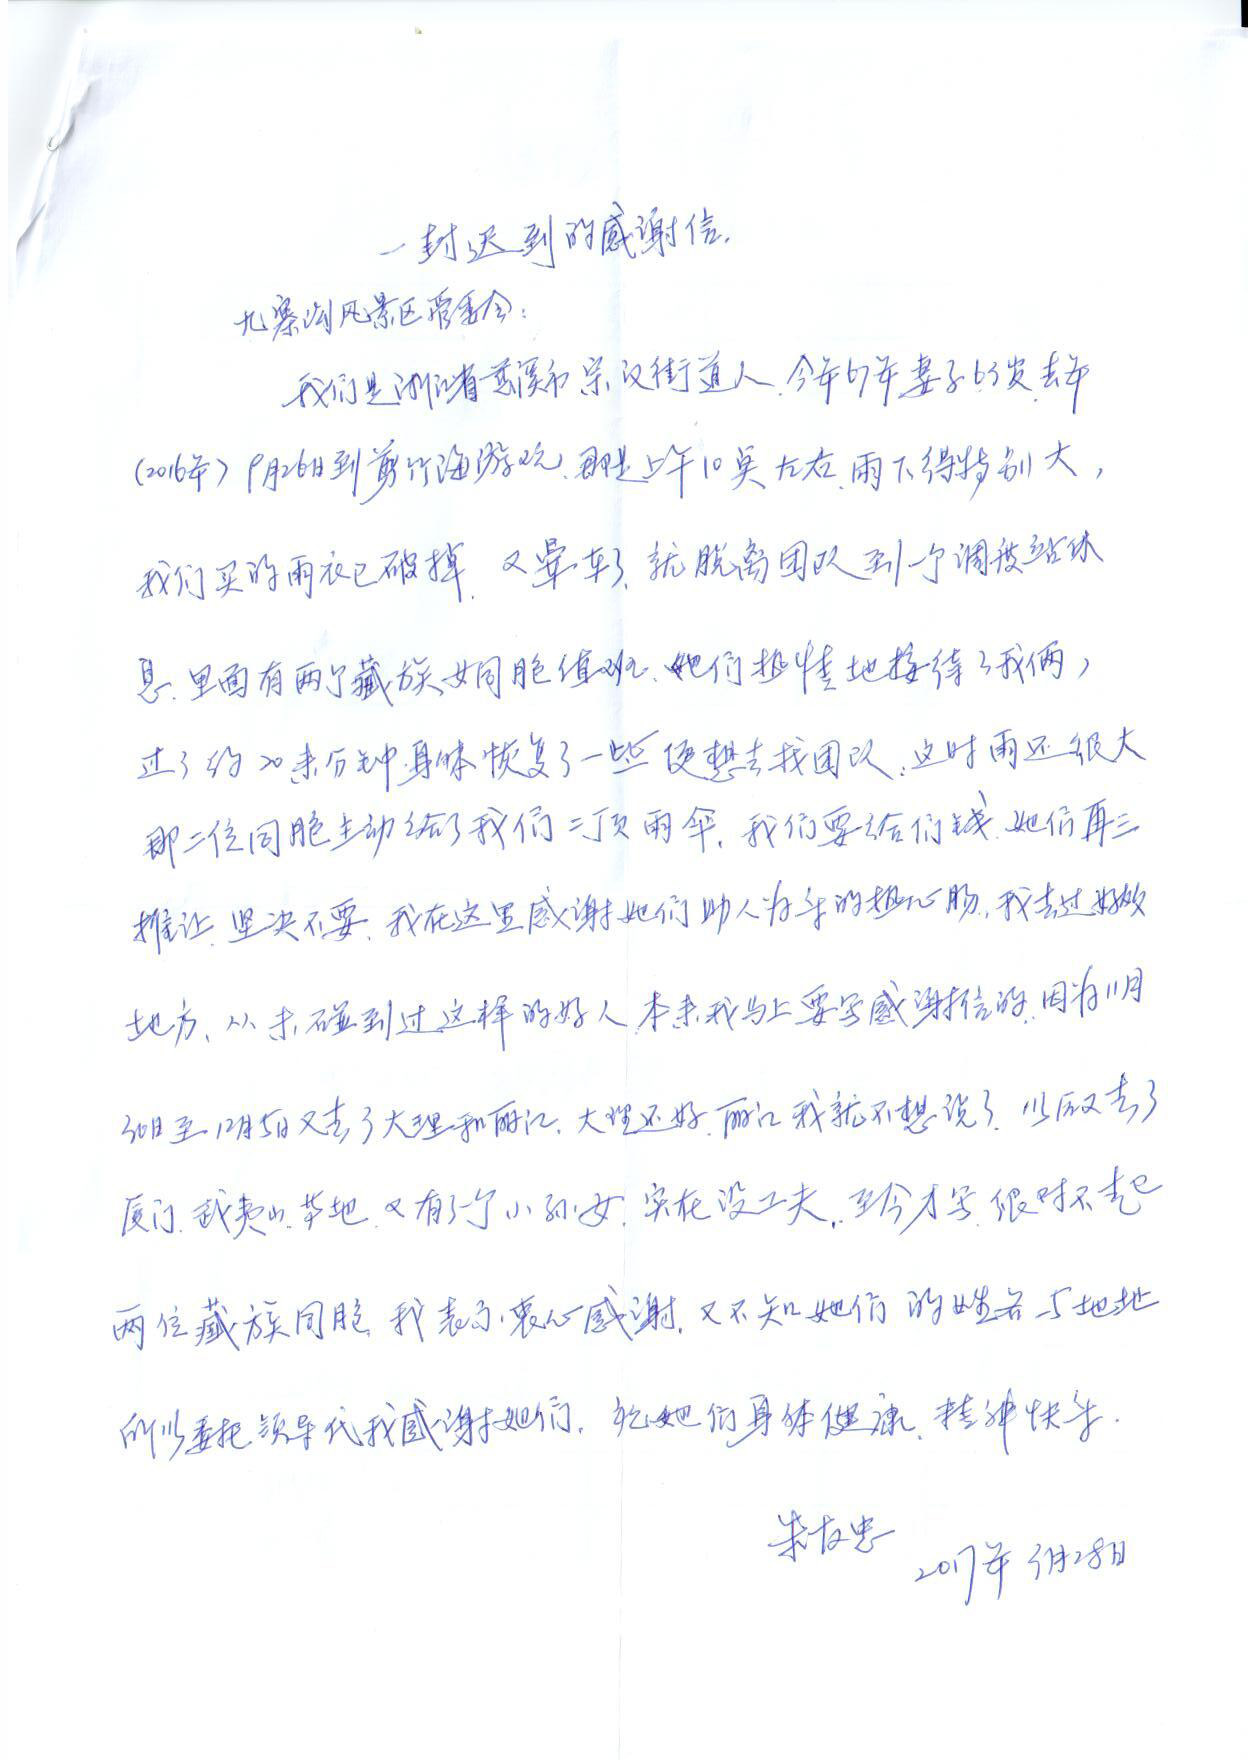 一封迟到的感谢信.
九寨沟风景区管委会:
我们是浙江省慈溪市宗汉街道人.今年67年妻子63岁.去年
(2016年)9月26日到剪竹海游玩.那是上午10点左右.雨下得特别大,
我们买的雨衣已破掉.又晕车了.就脱离团队到一个调度站休
息.里面有两个藏族女同胞值班.她们热情地接待了我俩,
过了约20来分钟身体恢复了一些便想去找团队.这时雨还很大
那二位同胞主动给了我们二顶雨伞.我们要给们钱.她们再三
推让.坚决不要.我在这里感谢她们助人为乐的热心肠.我去过好多
地方、从未碰到过这样的好人.本来我马上要写感谢信的.因为11月
30日至12月5日又去了大理和丽江.大理还好.丽江我就不想说了.以后又去了
厦门.武夷山.等地.又有了个小孙女.实在没工夫.至今才写.很对不起
两位藏族同胞.我表示衷心感谢.又不知她们的姓名与地址
所以委托领导代我感谢她们.祝她们身体健康.精神快乐.
朱友忠
2017年 月28日